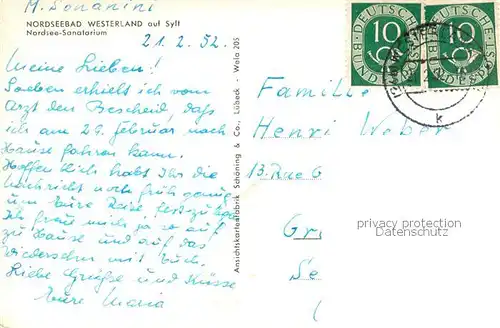 M. Sonanini
NORDSEEBAD WESTERLAND auf Sylt
Nordsee-Sanatorium
21.2.52.
Meine Lieben!
Soeben erhielt ich vom
Arzt den Bescheid, daß
ich am 29. Februar nach
Hause fahren kann.
Hoffentlich habt Ihr die
Nachricht noch früh genug
um Eure Reise festzulegen
Ich freu mich ja so auf
zu Hause und auf das
Wiedersehn mit Euch.
Liebe Grüße und Küsse
Eure Maria
Ansichtskartenfabrik Schöning & Co., Lübeck - Welo 205
DEUTSCHE BUNDESPOST
10
DEUTSCHE BUNDESPOST
10
k
Familie
Henri Weber
13. Rue
privacy protection
Datenschutz